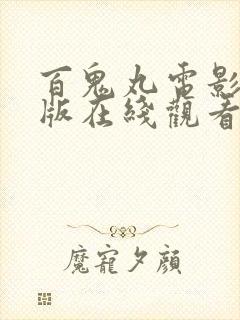 百鬼丸電影
版在綫觀看
魔寵夕顔